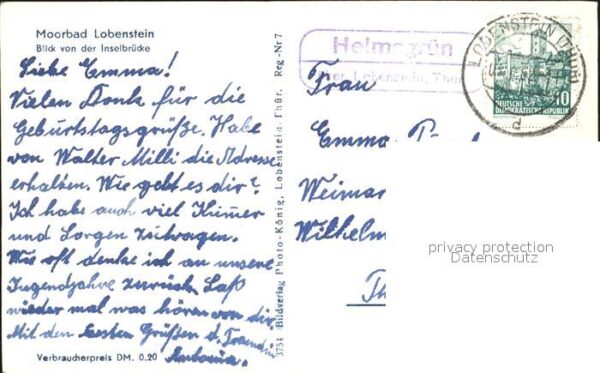 Moorbad Lobenstein
Blick von der Inselbrücke
Liebe Emma!
Vielen Dank für die
Geburtstagsgrüße. Habe
von Walter Milli die Adresse
erhalten. Wie geht es dir?
Ich habe auch viel Kummer
und Sorgen zu tragen.
Wie oft denke ich an unsere
Jugendjahre zurück. Laß
wieder mal was hören von dir.
Mit den besten Grüßen d. Freundin
Antonia.
Verbraucherpreis DM. 0.20
3754 Bildverlag Photo-König, Lobenstein, Thür. Reg.-Nr 7
Helmsgrün
über Lobenstein, Thür
LOBENSTEIN (THÜR)
d
DEUTSCHE
DEMOKRATISCHE REPUBLIK
10
Frau
Emma
Weimar
Wilhelm
Th
privacy protection
Datenschutz